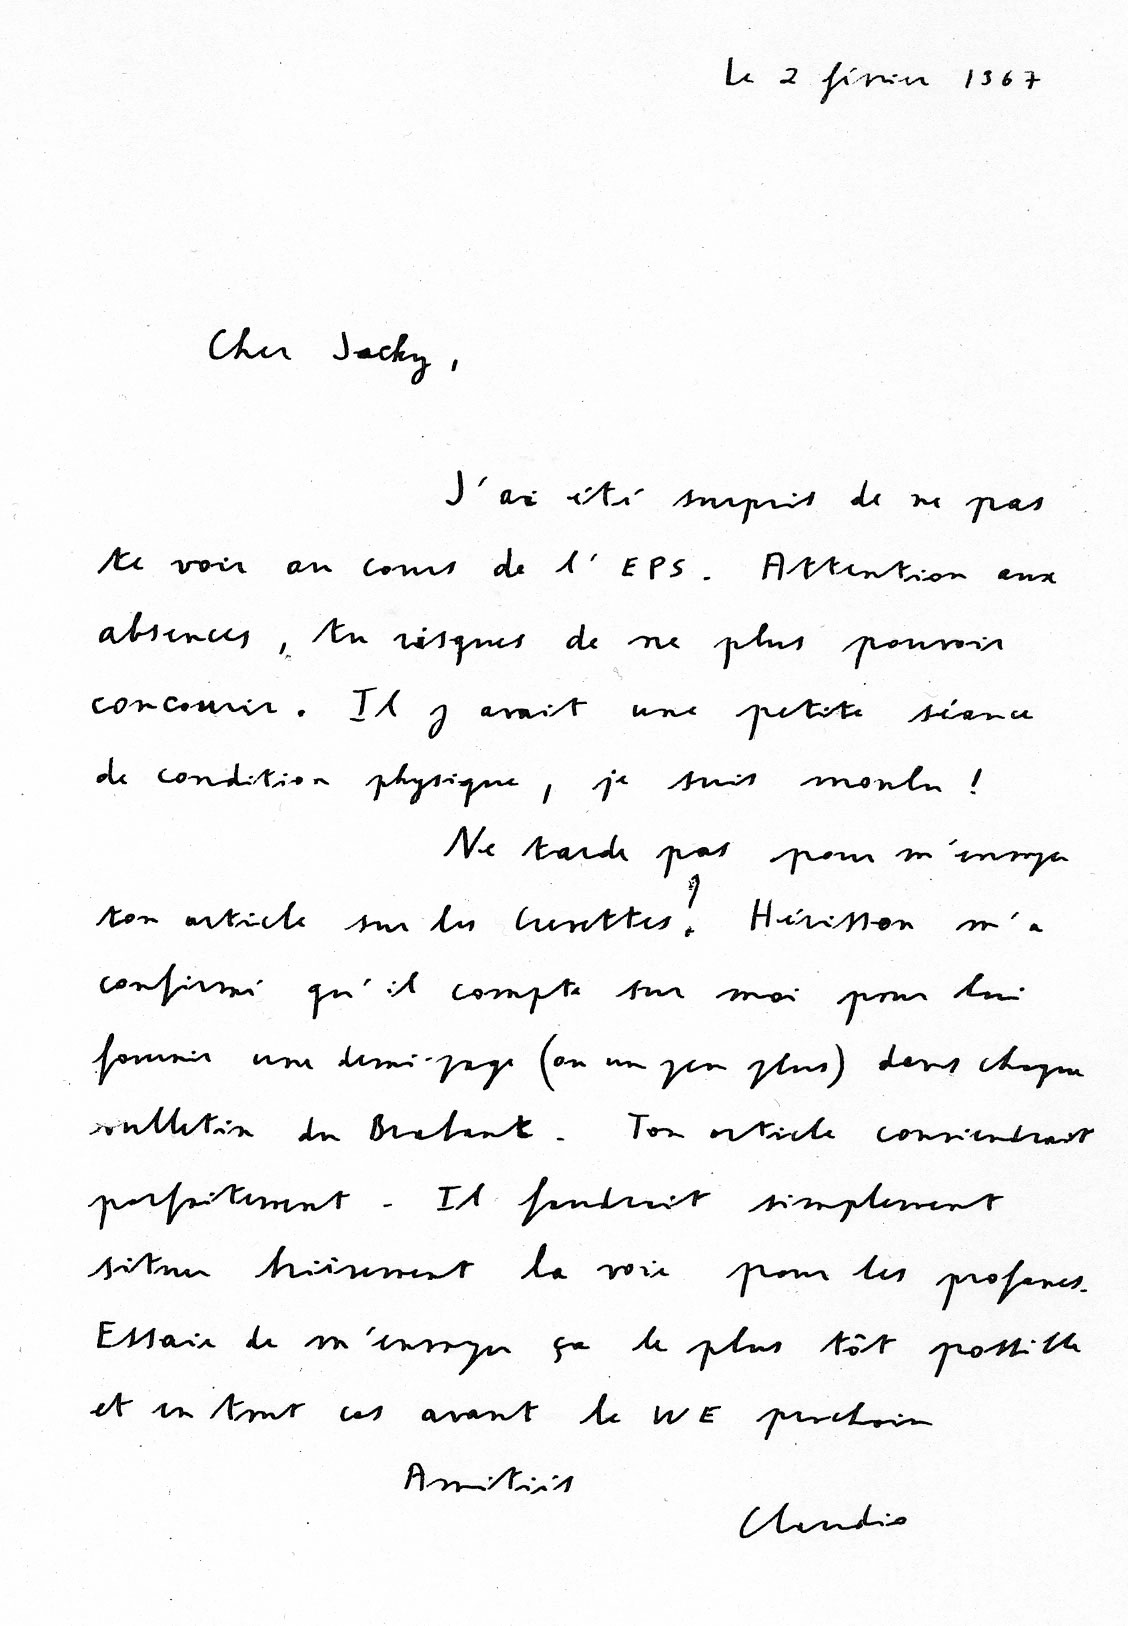 le 2 février 1967
Cher Jacky,
J'ai été surpris de ne pas
te voir au cours de l'EPS. Attention aux
absences, tu risques de ne plus pouvoir
concourir. Il y avait une petite séance
de condition physique, je suis moulu !
Ne tarde pas pour m'envoyer
ton article sur les Crusettes ! Hérisson m'a
confirmé qu'il compte sur moi pour lui
fournir une demi-page (ou un peu plus) dans chaque
bulletin du Brabant. Ton article conviendrait
parfaitement. Il faudrait simplement
situer brièvement la voie pour les profanes.
Essaie de m'envoyer ça le plus tôt possible
et en tout cas avant le WE prochain
Amitiés
Claudio